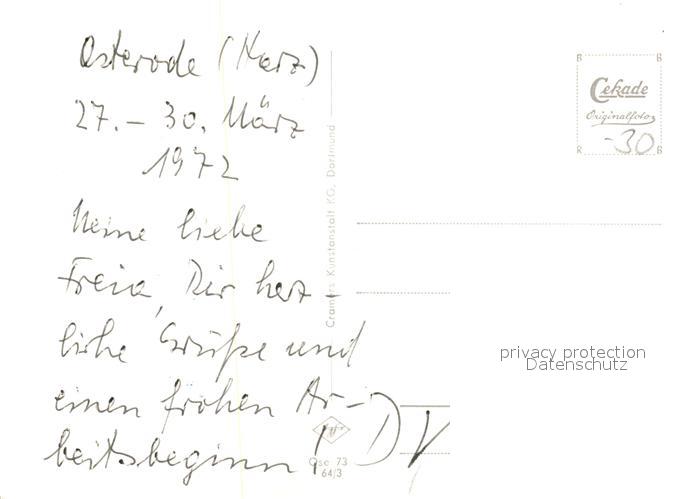 Osterode (Harz)
27. – 30. März
1972
Meine liebe
Freia, Dir herz-
liche Grüße und
einen frohen Ar-
beitsbeginn!
Cramers Kunstanstalt KG, Dortmund
Cekade
Originalfoto
-30
privacy protection
Datenschutz
Ose 73
64/3